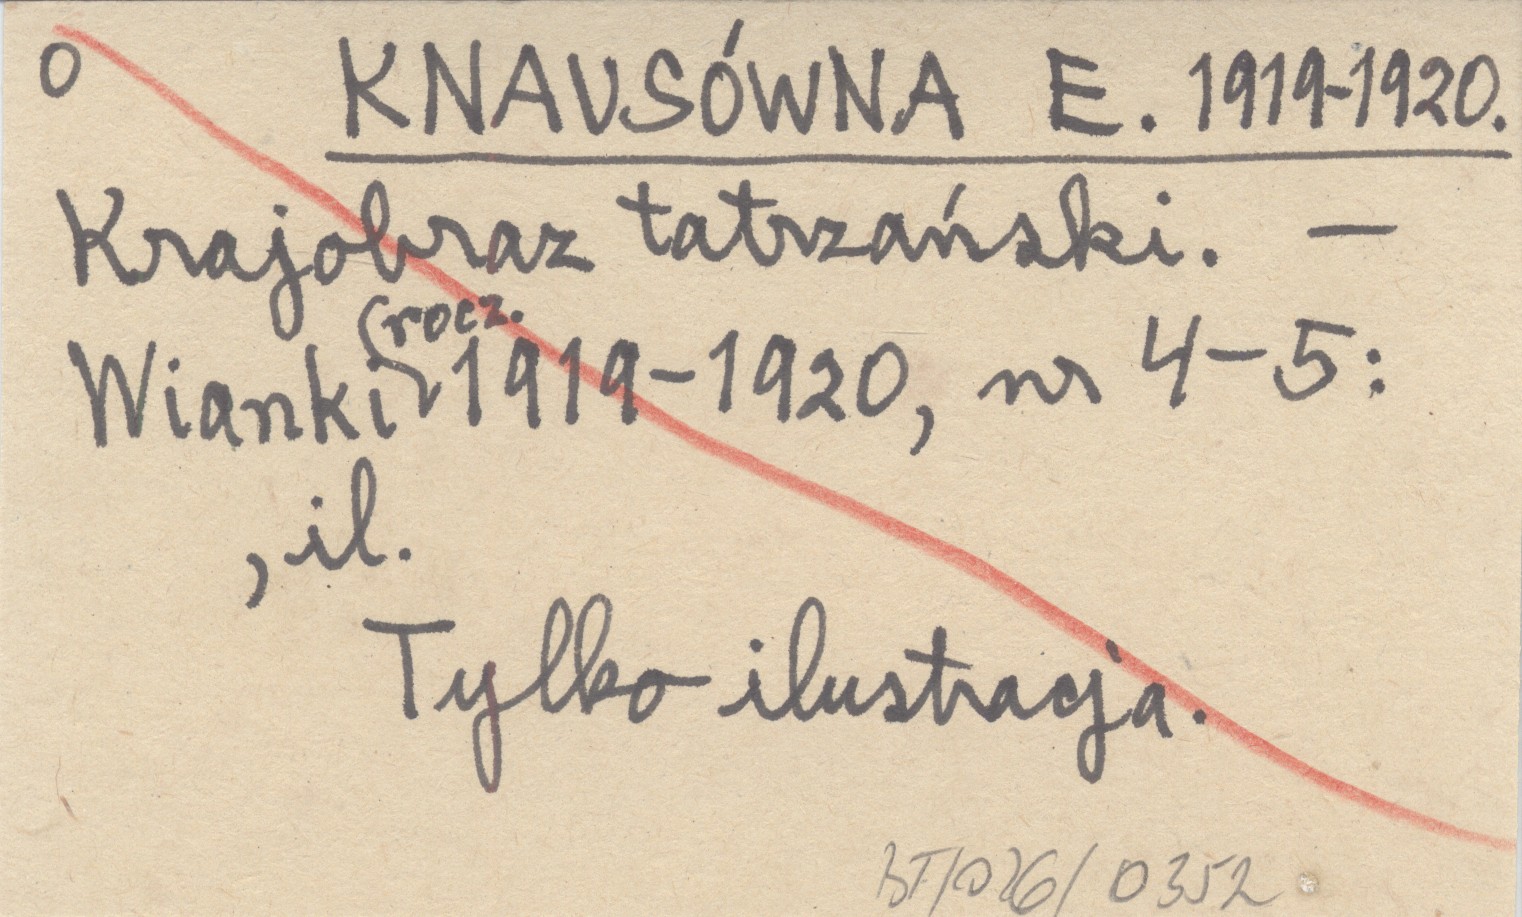 O KNAUSÓWNA E. 1919-1920.
Krajobraz tatrzański. —
Wianki (rocz. 1919-1920, nr 4-5:
, il.
Tylko ilustracja.
0352